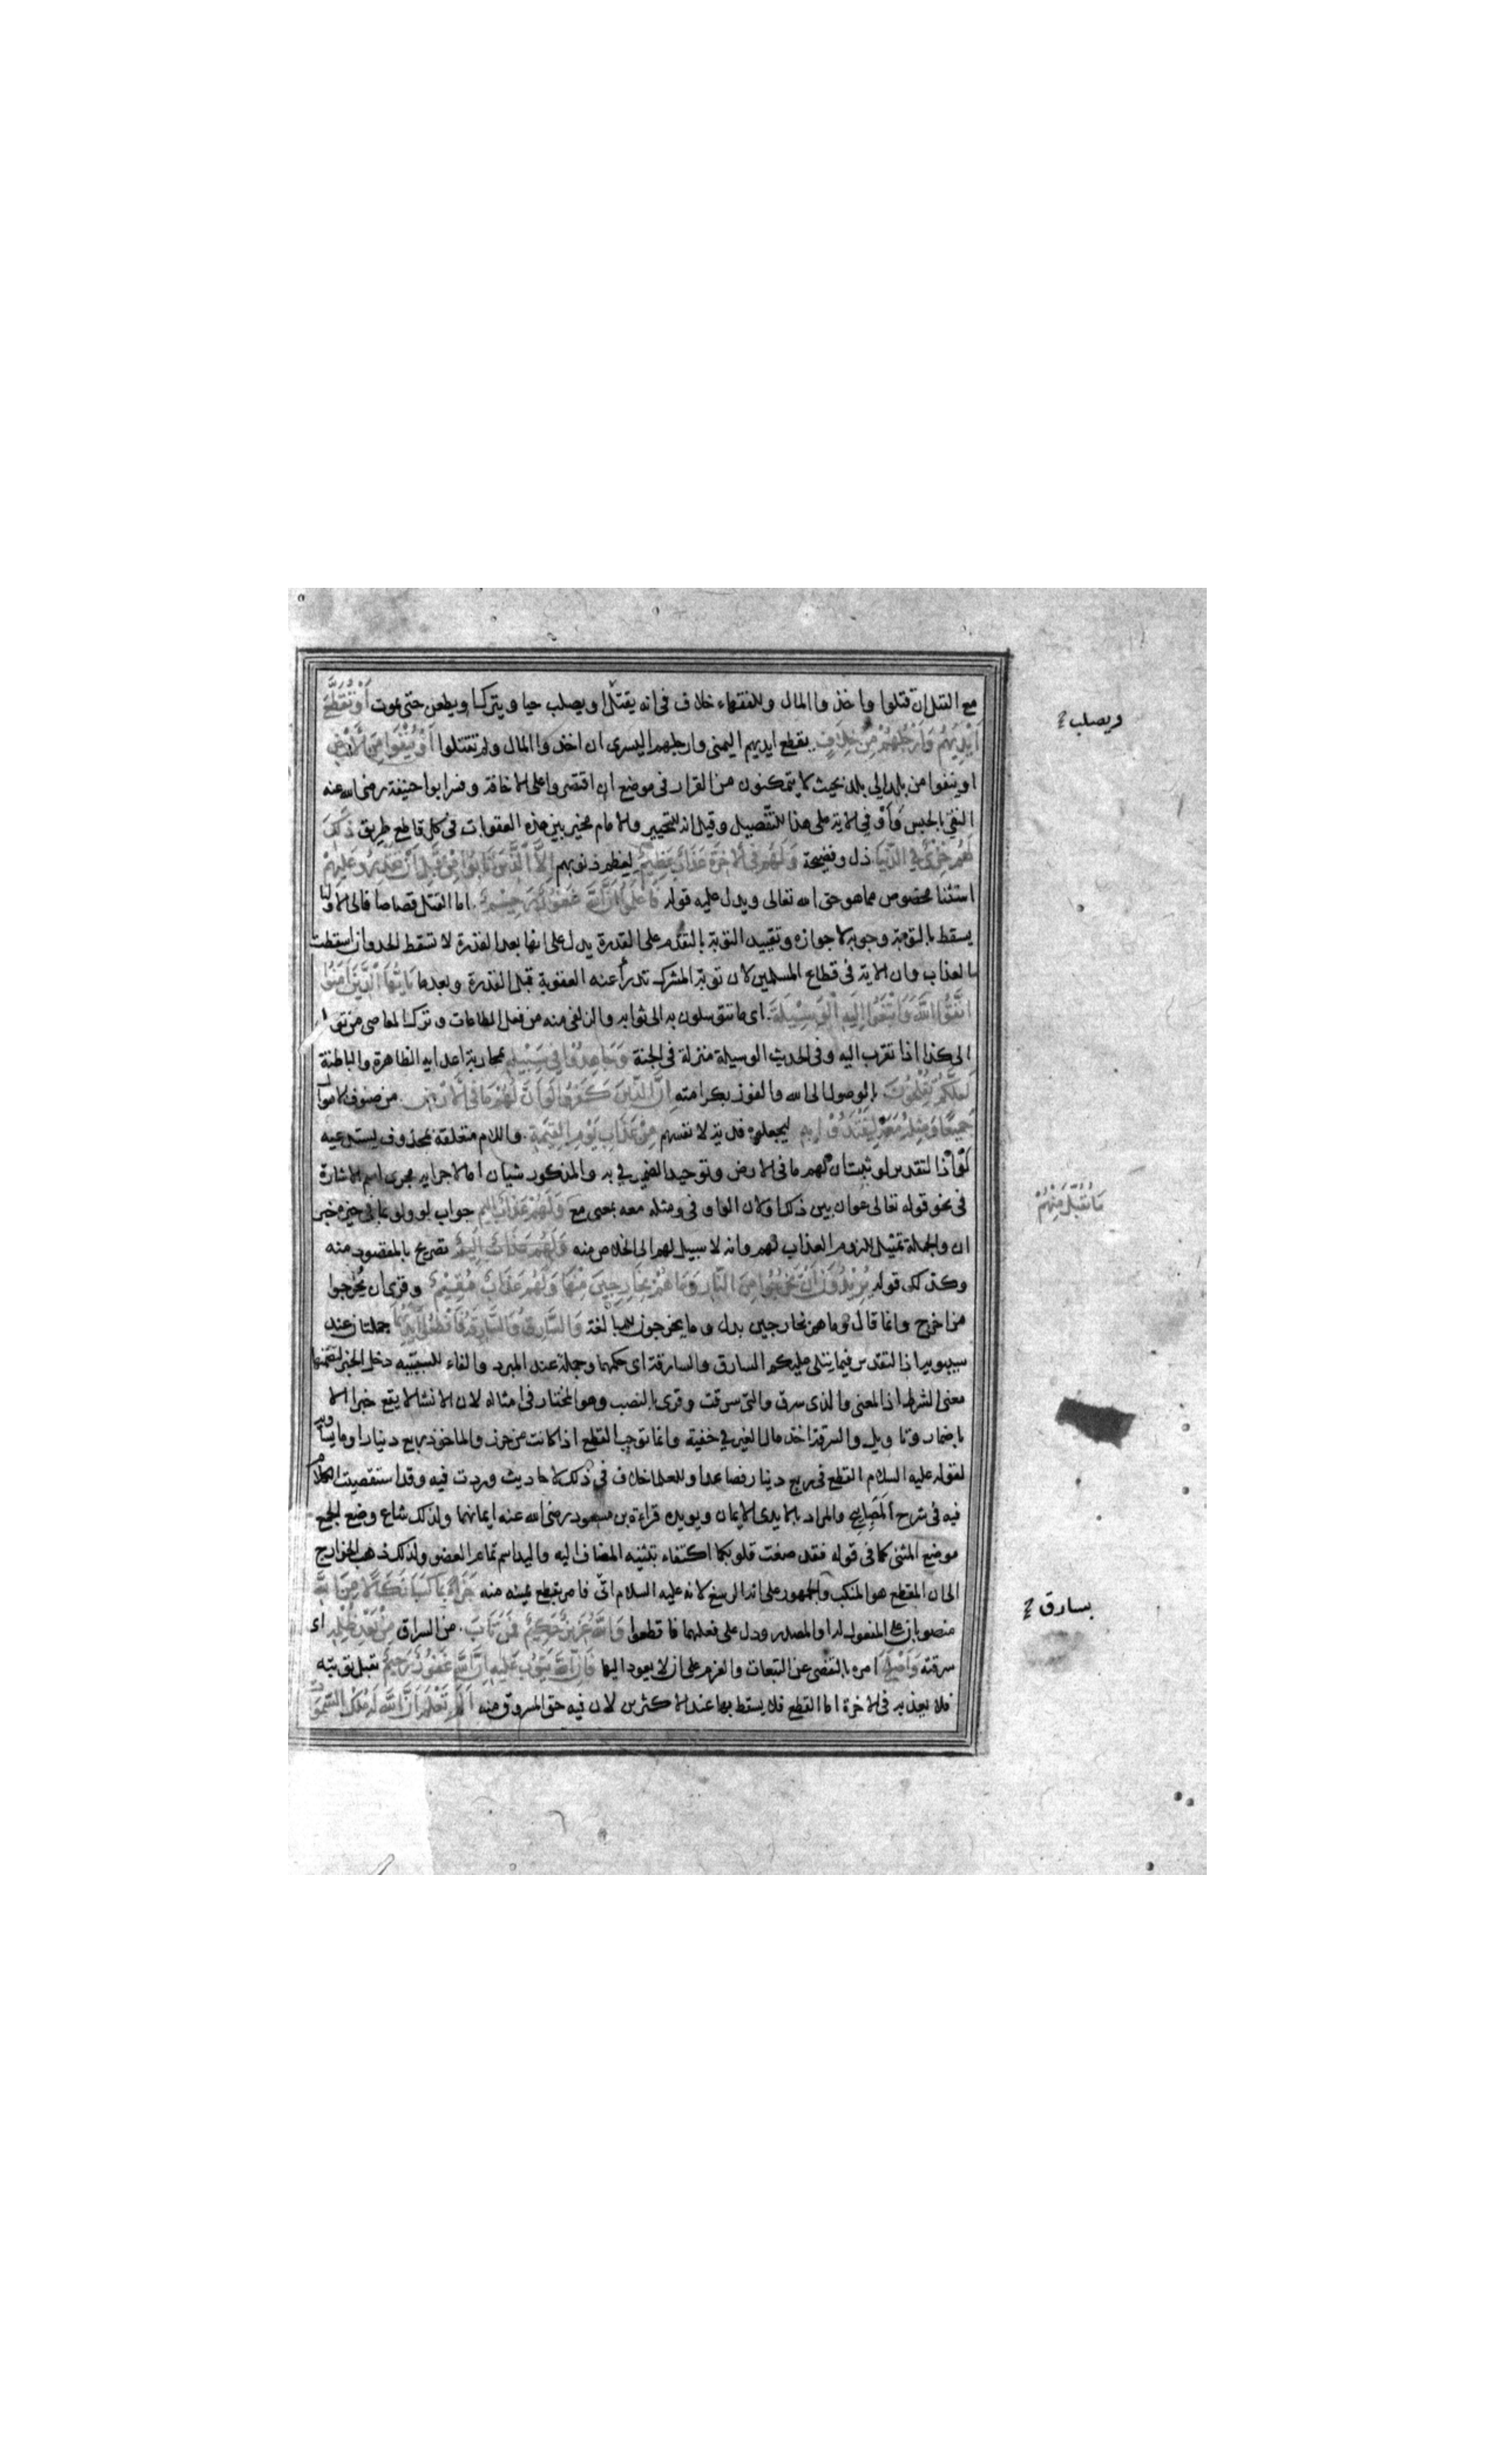 مع القتل ان قتلوا واخذوا المال وللفقهاء خلاف في انه يقتل او يصلب حيا ويترك او يطعن حتى يموت أَوْ تُقَطَّعَ
أَيْدِيهِمْ وَأَرْجُلُهُمْ مِنْ خِلَافٍ يقطع ايديهم اليمنى وارجلهم اليسرى ان اخذوا المال ولم يقتلوا أَوْ يُنْفَوْا مِنَ الْأَرْضِ
او ينفوا من بلد الى بلد بحيث لا يتمكنون من القرار في موضع ان اقتصروا على الاخافة وفسر ابو حنيفة رضى الله عنه
النفي بالحبس وَأَوْ في الاية على هذا للتفصيل وقيل انه للتخيير والامام مخير بين هذه العقوبات في كل قاطع طريق ذَلِكَ
لَهُمْ خِزْيٌ فِي الدُّنْيَا ذل وفضيحة وَلَهُمْ فِي الْآخِرَةِ عَذَابٌ عَظِيمٌ لعظم ذنوبهم إِلَّا الَّذِينَ تَابُوا مِنْ قَبْلِ أَنْ تَقْدِرُوا عَلَيْهِمْ
استثنا مخصوص مما هو حق الله تعالى ويدل عليه قوله فَاعْلَمُوا أَنَّ اللَّهَ غَفُورٌ رَحِيمٌ. اما القتل قصاصا فالى الاوليا
يسقط بالتوبة وجوبه لا جوازه وتقييد التوبة بالتقدم على القدرة يدل على انها بعد القدرة لا تسقط الحد وان اسقطت
العذاب وان الاية في قطاع المسلمين لان توبة المشرك تدرأ عنه العقوبة قبل القدرة وبعدها يَا أَيُّهَا الَّذِينَ آمَنُوا
اتَّقُوا اللَّهَ وَابْتَغُوا إِلَيْهِ الْوَسِيلَةَ. اى ما تتوسلون به الى ثوابه والزلفى منه من فعل الطاعات وترك المعاصى من توسل
الى كذا اذا تقرب اليه وفي الحديث الوسيلة منزلة في الجنة وَجَاهِدُوا فِي سَبِيلِهِ بمحاربة اعدايه الظاهرة والباطنة
لَعَلَّكُمْ تُفْلِحُونَ بالوصول الى الله والفوز بكرامته إِنَّ الَّذِينَ كَفَرُوا لَوْ أَنَّ لَهُمْ مَا فِي الْأَرْضِ. من صنوف الاموال
جَمِيعًا وَمِثْلَهُ مَعَهُ لِيَفْتَدُوا بِهِ ليجعلوه فدية لانفسهم مِنْ عَذَابِ يَوْمِ الْقِيَمَةِ. واللام متعلقة بمحذوف يستدعيه
لو اذ التقدير لو ثبت ان لهم ما في الارض وتوحيد الضمير في به والمذكور شيان اما لاجرايه مجرى اسم الاشارة
في نحو قوله تعالى عوان بين ذلك او لان الواو في ومثله معه بمعنى مع وَلَهُمْ عَذَابٌ أَلِيمٌ جواب لو ولو بما في حيزه خبر
ان والجملة تمثيل للزوم العذاب لهم وانه لا سبيل لهم الى الخلاص منه وَلَهُمْ عَذَابٌ أَلِيمٌ تصريح بالمقصود منه
وكذلك قوله يُرِيدُونَ أَنْ يَخْرُجُوا مِنَ النَّارِ وَمَا هُمْ بِخَارِجِينَ مِنْهَا وَلَهُمْ عَذَابٌ مُقِيمٌ وقرى ان يُخرجوا
من اخرج وانما قال وما هم بخارجين بدل وما يخرجون للمبالغة وَالسَّارِقُ وَالسَّارِقَةُ فَاقْطَعُوا أَيْدِيَهُمَا جملتان عند
سيبويه اذ التقدير فيما يتلى عليكم السارق والسارقة اى حكمهما وجملة عند المبرد والفاء للسببيه دخل الخبر لتضمنها
معنى الشرط اذ المعنى والذى سرق والتى سرقت وقرى بالنصب وهو المختار في امثاله لان الانشا لا يقع خبرا الا
باضمار وتاويل والسرقة اخذ مال الغير في خفية وانما توجب القطع اذا كانت من حرز والماخوذ ربع دينار او ما يساويه
لقوله عليه السلام القطع في ربع دينار فصاعدا وللعلما خلاف في ذلك لاحاديث وردت فيه وقد استقصيت الكلام
فيه في شرح المَصَابِيح والمراد بالايدى الايمان ويويده قراءة بن مسعود رضى الله عنه ايمانهما ولذلك شاع وضع الجمع
موضع المثنى كما في قوله فقد صغت قلوبكما اكتفاء بتثنيه المضاف اليه واليد اسم تمام العضو ولذلك ذهب الخوارج
الى ان المقطع هو المنكب والجمهور على انه الرسغ لانه عليه السلام اتى فامر بقطع يمينه منه جَزَاءً بِمَا كَسَبَا نَكَالًا مِنَ اللَّهِ
منصوبان على المفعول له او المصدر ودل على فعلهما فاقطعوا وَاللَّهُ عَزِيزٌ حَكِيمٌ فَمَنْ تَابَ. من السراق مِنْ بَعْدِ ظُلْمِهِ اى
سرقته وَأَصْلَحَ امره بالتفصى عن التبعات والعزم على ان لا يعود اليها فَإِنَّ اللَّهَ يَتُوبُ عَلَيْهِ إِنَّ اللَّهَ غَفُورٌ رَحِيمٌ تقبل توبته
فلا يعذبه في الاخرة اما القطع فلا يسقط بها عند الاكثرين لان فيه حق المسروق منه أَلَمْ تَعْلَمْ أَنَّ اللَّهَ لَهُ مُلْكُ السَّمَوَاتِ
ويصلب
مَا تُقُبِّلَ مِنْهُمْ
بسارق